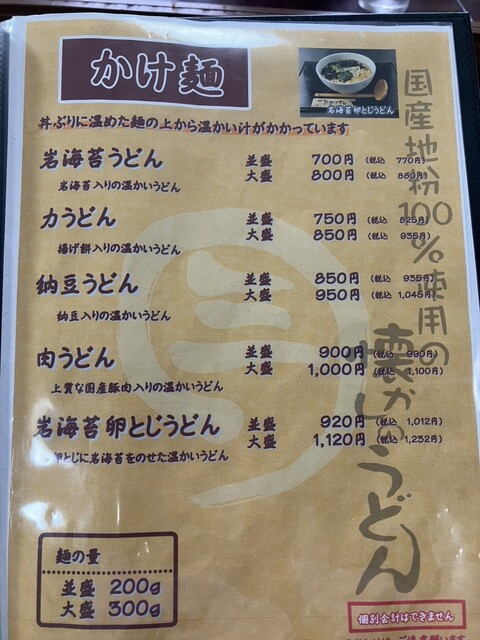 かけ麺
岩海苔卵とじうどん
丼ぶりに温めた麺の上から温かい汁がかかっています
岩海苔うどん 並盛 700円 (税込 770円)
大盛 800円 (税込 880円)
岩海苔入りの温かいうどん
力うどん 並盛 750円 (税込 825円)
大盛 850円 (税込 935円)
揚げ餅入りの温かいうどん
納豆うどん 並盛 850円 (税込 935円)
大盛 950円 (税込 1,045円)
納豆入りの温かいうどん
肉うどん 並盛 900円 (税込 990円)
大盛 1,000円 (税込 1,100円)
上質な国産豚肉入りの温かいうどん
岩海苔卵とじうどん 並盛 920円 (税込 1,012円)
大盛 1,120円 (税込 1,232円)
卵とじに岩海苔をのせた温かいうどん
国産地粉100%使用の
懐かしのうどん
麺の量
並盛 200g
大盛 300g
個別会計はできません